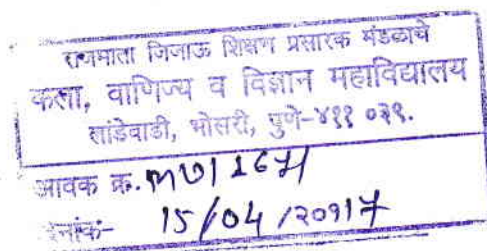 राजमाता जिजाऊ शिक्षण प्रसारक मंडळाचे
कला, वाणिज्य व विज्ञान महाविद्यालय
लांडेवाडी, भोसरी, पुणे-४११ ०३९.
आवक क्र.
दिनांक- 15/04/20917